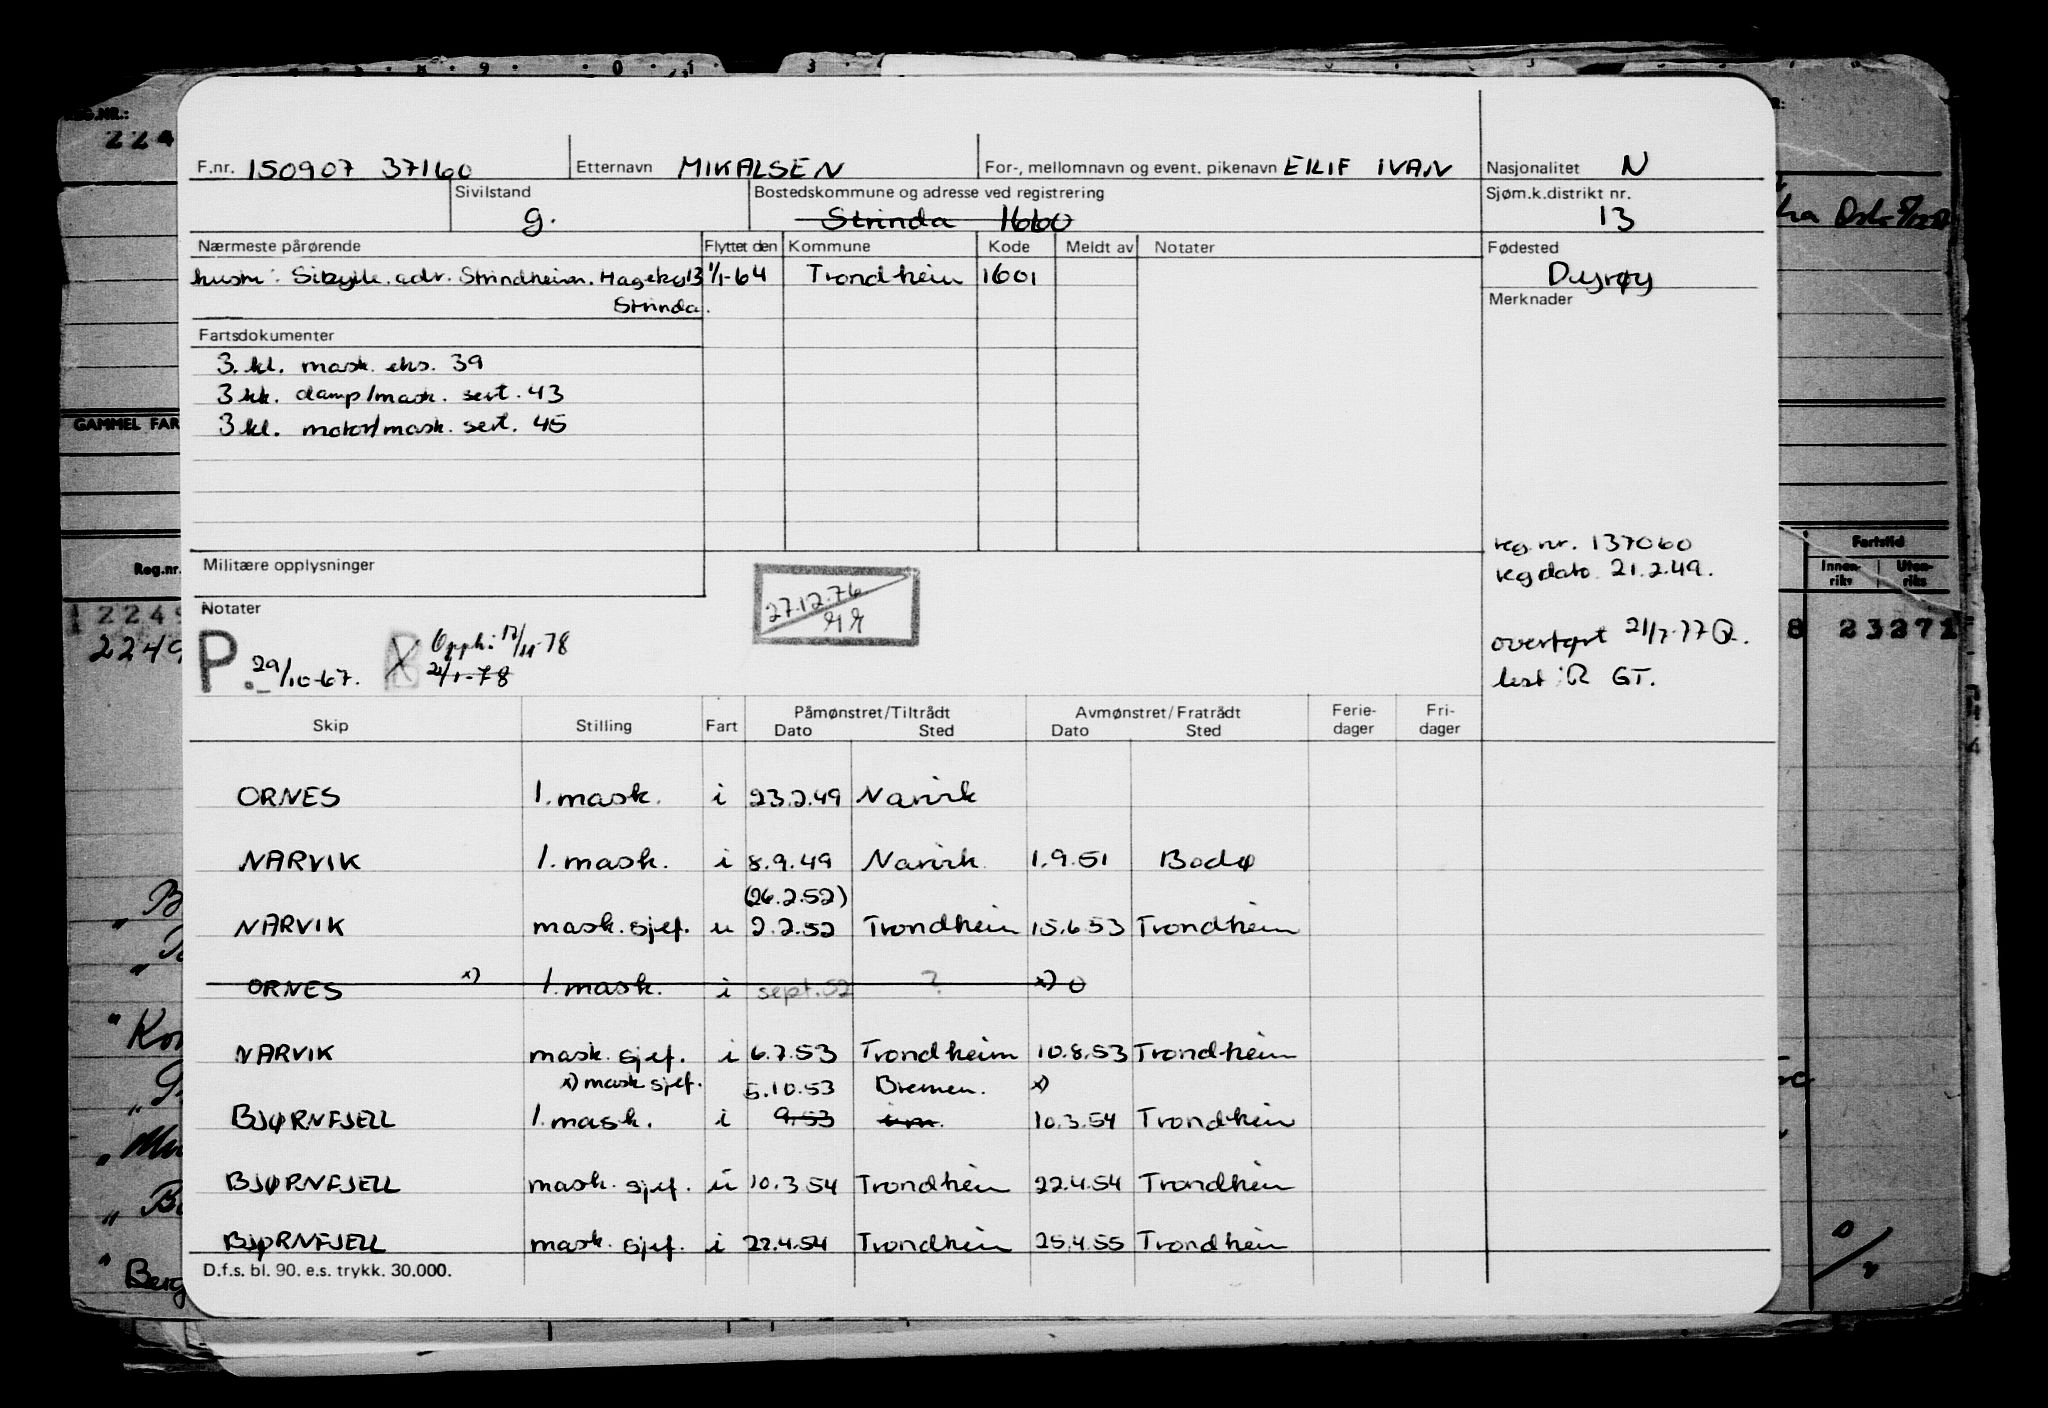 F.nr. 150907 37160 Etternavn MIKALSEN For-, mellomnavn og event. pikenavn EILIF IVAN Nasjonalitet N
Sivilstand g. Bostedskommune og adresse ved registrering Strinda 1660 Sjøm.k.distrikt nr. 13
Nærmeste pårørende Flyttet den Kommune Kode Meldt av Notater Fødested
hustr: adr. Strindheim. 1/1-64 Trondheim 1601 Dyrøy
Strinda. Merknader
Fartsdokumenter
3. kl. mask. eks. 39
3 kl. damp/mask. sert. 43
3 kl. motor/mask. sert. 45
reg. nr. 137060
Militære opplysninger reg dato. 21.2.49.
Notater 27.12.76
P. 29/10-67. Opph: 17/11-78 overført 21/7-77
21/1-78 lest: GT.
Skip Stilling Fart Påmønstret/Tiltrådt Dato Sted Avmønstret/Fratrådt Dato Sted Ferie-dager Fri-dager
ORNES 1. mask. i 23.2.49 Narvik
NARVIK 1. mask. i 8.9.49 Narvik 1.9.51 Bodø
(26.2.52)
NARVIK mask. sjef. u 2.2.52 Trondheim 15.6.53 Trondheim
ORNES x) 1. mask. i sept. 52 ? x) 0
NARVIK mask. sjef. i 6.7.53 Trondheim 10.8.53 Trondheim
x) mask sjef. 5.10.53 Bremen. x)
BJØRNFJELL 1. mask. i 9.53 10.3.54 Trondheim
BJØRNFJELL mask. sjef. u 10.3.54 Trondheim 22.4.54 Trondheim
BJØRNFJELL mask. sjef. i 22.4.54 Trondheim 25.4.55 Trondheim
D.f.s. bl. 90. e.s. trykk. 30.000.
GAMMEL FAR
Reg.nr.
2249
2249
Fartstid
Innen-riks Uten-riks
8 23271
Berg